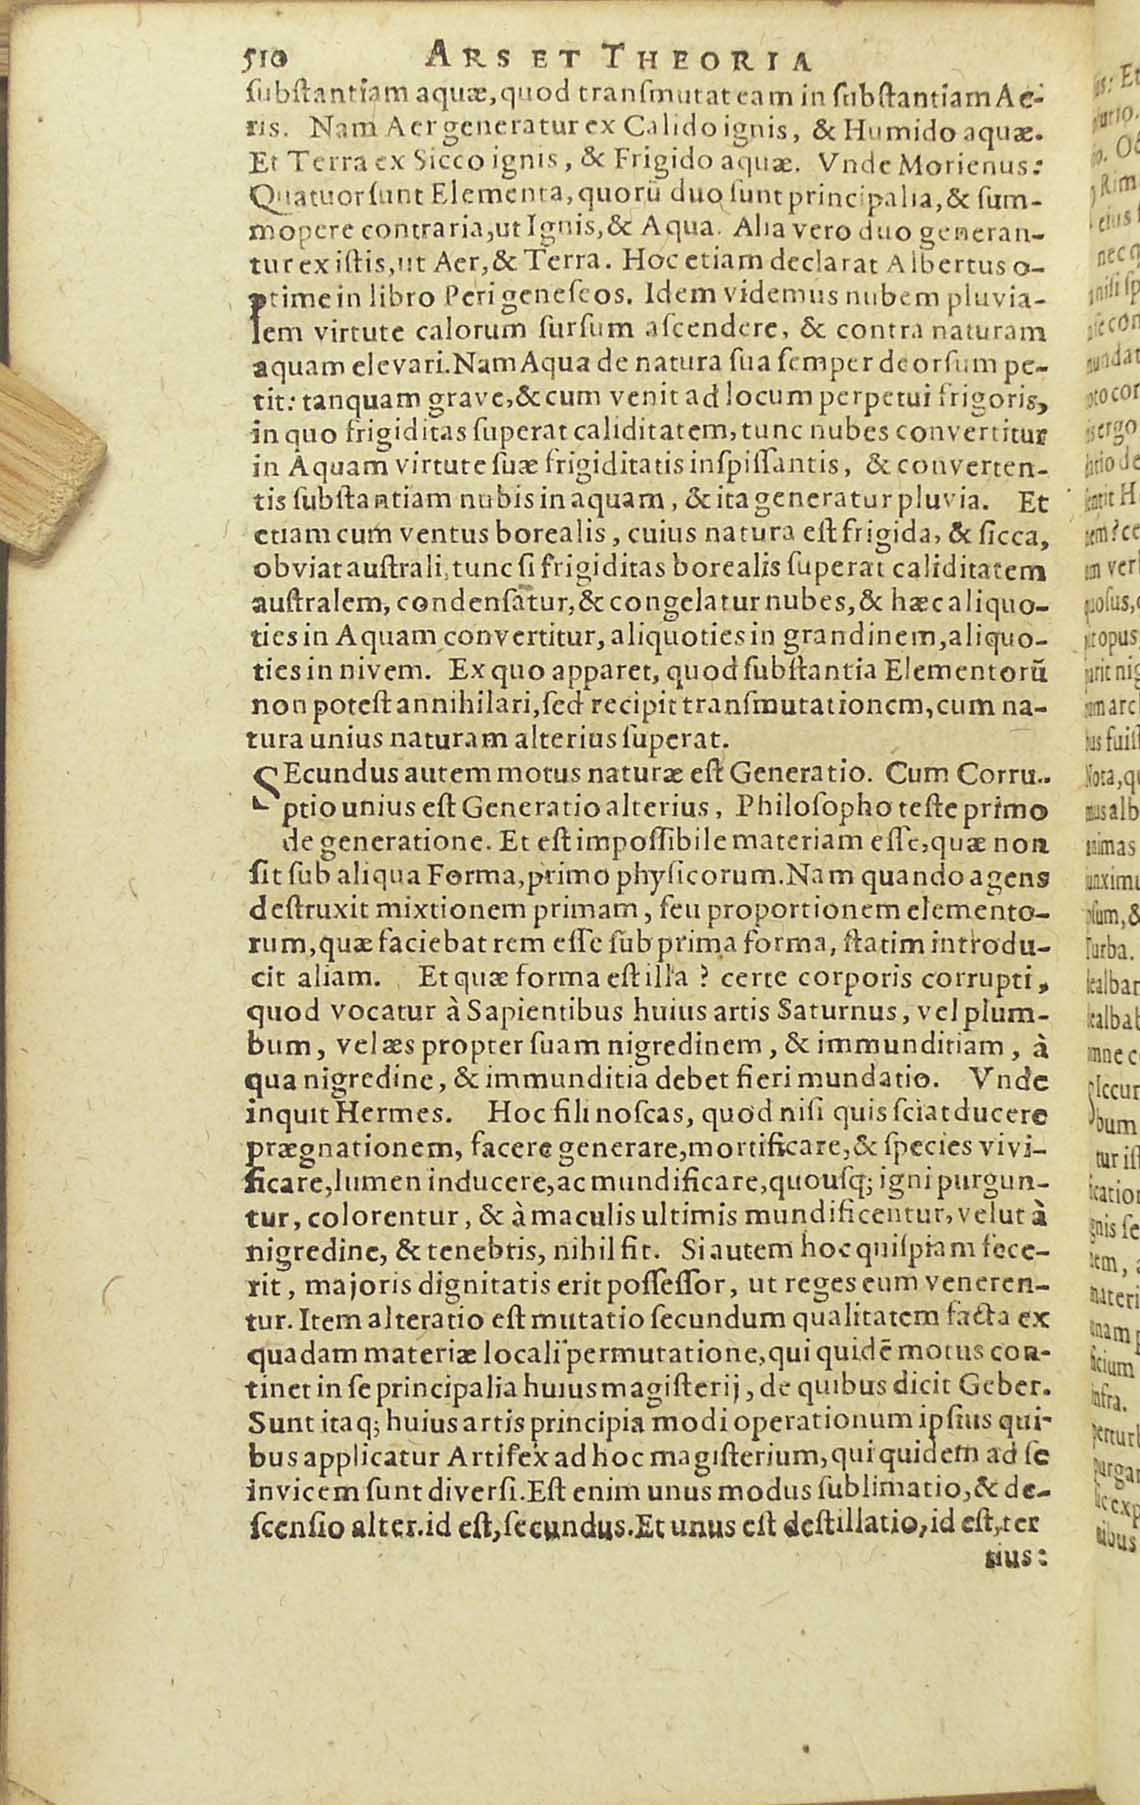 510 ARS ET THEORIA
ſubſtantiam aquæ, quod tranſmutat eam in ſubſtantiam Ae-
ris. Nam Aer generatur ex Calido ignis, & Humido aquæ.
Et Terra ex Sicco ignis, & Frigido aquæ. Vnde Morienus:
Quatuor ſunt Elementa, quorū duo ſunt principalia, & ſum-
mopere contraria, ut Ignis, & Aqua. Alia vero duo generan-
tur ex iſtis, ut Aer, & Terra. Hoc etiam declarat Albertus o-
ptime in libro Peri geneſeos. Idem videmus nubem pluvia-
lem virtute calorum ſurſum aſcendere, & contra naturam
aquam elevari. Nam Aqua de natura ſua ſemper deorſum pe-
tit: tanquam grave, & cum venit ad locum perpetui frigoris,
in quo frigiditas ſuperat caliditatem, tunc nubes convertitur
in Aquam virtute ſuæ frigiditatis inſpiſſantis, & converten-
tis ſubſtantiam nubis in aquam, & ita generatur pluvia. Et
etiam cum ventus borealis, cuius natura eſt frigida, & ſicca,
obviat auſtrali, tunc ſi frigiditas borealis ſuperat caliditatem
auſtralem, condenſatur, & congelatur nubes, & hæc aliquo-
ties in Aquam convertitur, aliquoties in grandinem, aliquo-
ties in nivem. Ex quo apparet, quod ſubſtantia Elementorū
non poteſt annihilari, ſed recipit tranſmutationem, cum na-
tura unius naturam alterius ſuperat.
SEcundus autem motus naturæ eſt Generatio. Cum Corru-
ptio unius eſt Generatio alterius, Philoſopho teſte primo
de generatione. Et eſt impoſſibile materiam eſſe, quæ non
ſit ſub aliqua Forma, primo phyſicorum. Nam quando agens
deſtruxit mixtionem primam, ſeu proportionem elemento-
rum, quæ faciebat rem eſſe ſub prima forma, ſtatim introdu-
cit aliam. Et quæ forma eſt illa? certe corporis corrupti,
quod vocatur à Sapientibus huius artis Saturnus, vel plum-
bum, vel æs propter ſuam nigredinem, & immunditiam, à
qua nigredine, & immunditia debet fieri mundatio. Vnde
inquit Hermes. Hoc fili noſcas, quod niſi quis ſciat ducere
prægnationem, facere generare, mortificare, & ſpecies vivi-
ficare, lumen inducere, ac mundificare, quouſq; igni purgun-
tur, colorentur, & à maculis ultimis mundificentur, velut à
nigredine, & tenebris, nihil fit. Si autem hoc quiſpiam fece-
rit, majoris dignitatis erit poſſeſſor, ut reges eum veneren-
tur. Item alteratio eſt mutatio ſecundum qualitatem facta ex
quadam materiæ locali permutatione, qui quidē motus con-
tinet in ſe principalia huius magiſterij, de quibus dicit Geber.
Sunt itaq; huius artis principia modi operationum ipſius qui-
bus applicatur Artifex ad hoc magiſterium, qui quidem ad ſe
invicem ſunt diverſi. Eſt enim unus modus ſublimatio, & de-
ſcenſio alter. id eſt, ſecundus. Et unus eſt deſtillatio, id eſt, ter
tius: